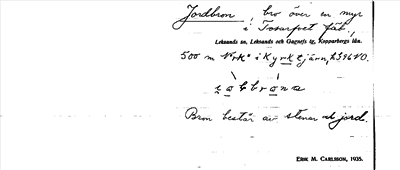 Jordbron, bro över en myr
i Tosarfvet fäb.,
Leksands sn, Leksands och Gagnefs tg, Kopparbergs län.
500 m N "rk" i Kyrktjärn,
Bron består av stenar och jord.
ERIK M. CARLSSON, 1935.